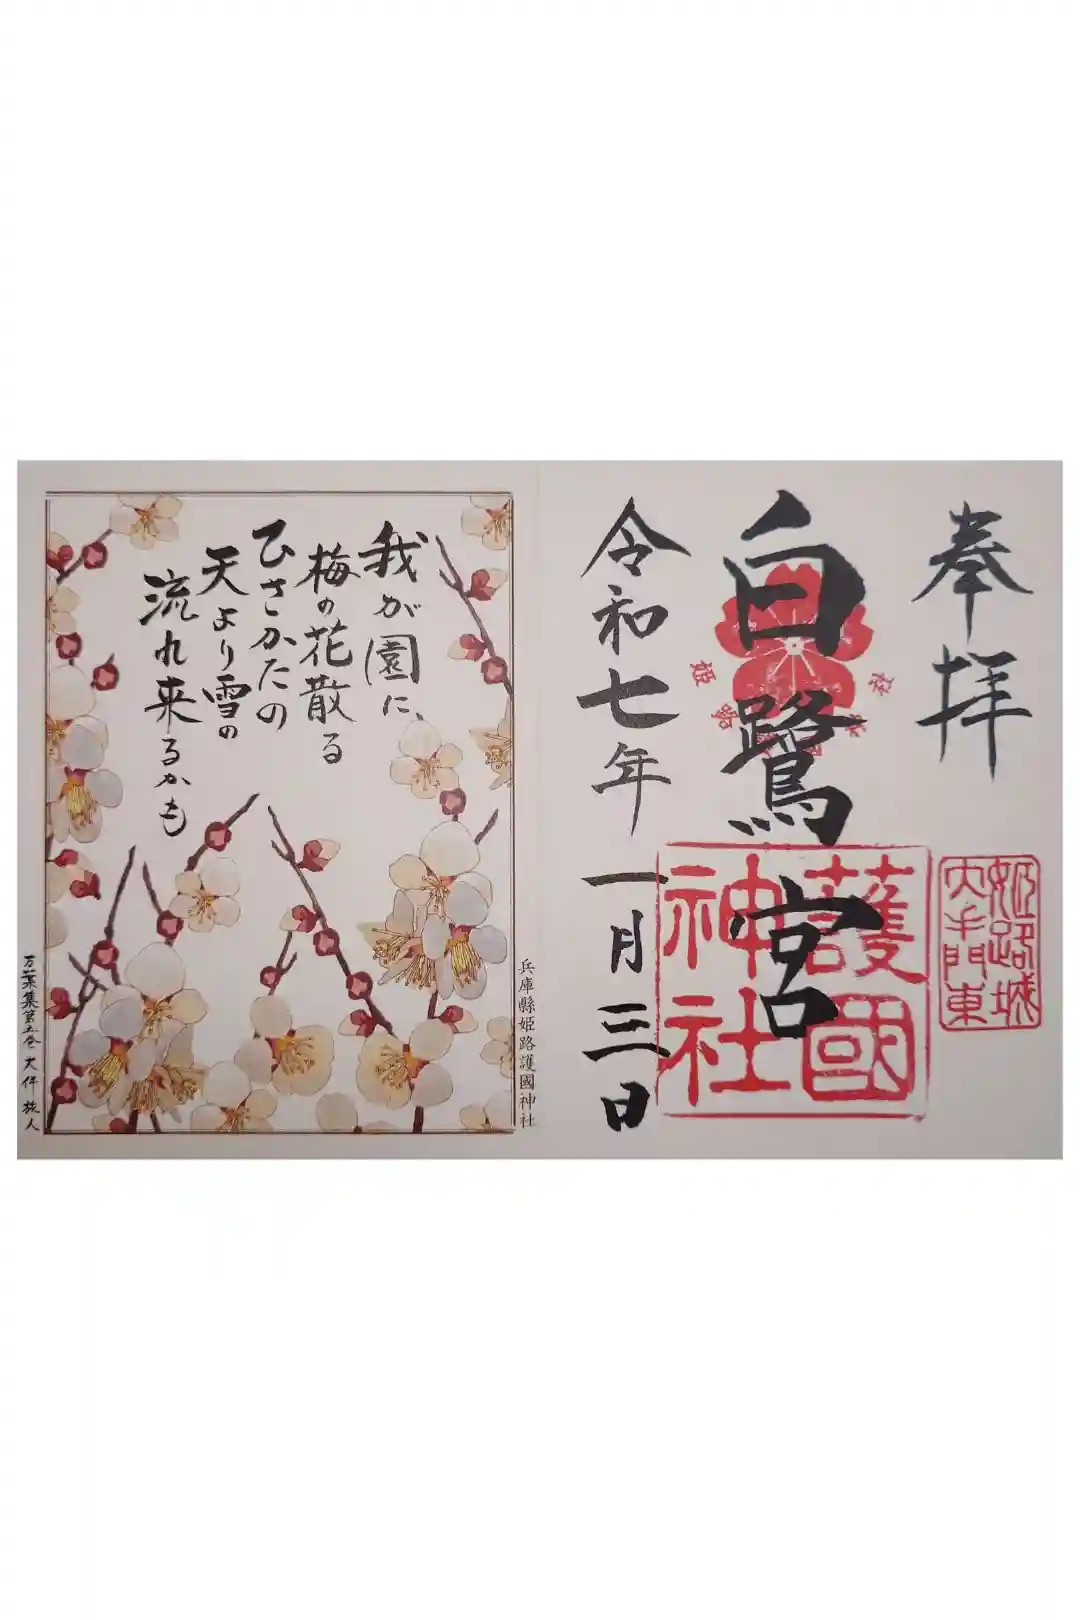 奉拝
姫路城
大手門東
白鷺宮
護國
神社
令和七年一月三日
兵庫縣姫路護國神社
我が園に、
梅の花散る
ひさかたの
天より雪の
流れ来るかも
万葉集第五巻 大伴旅人